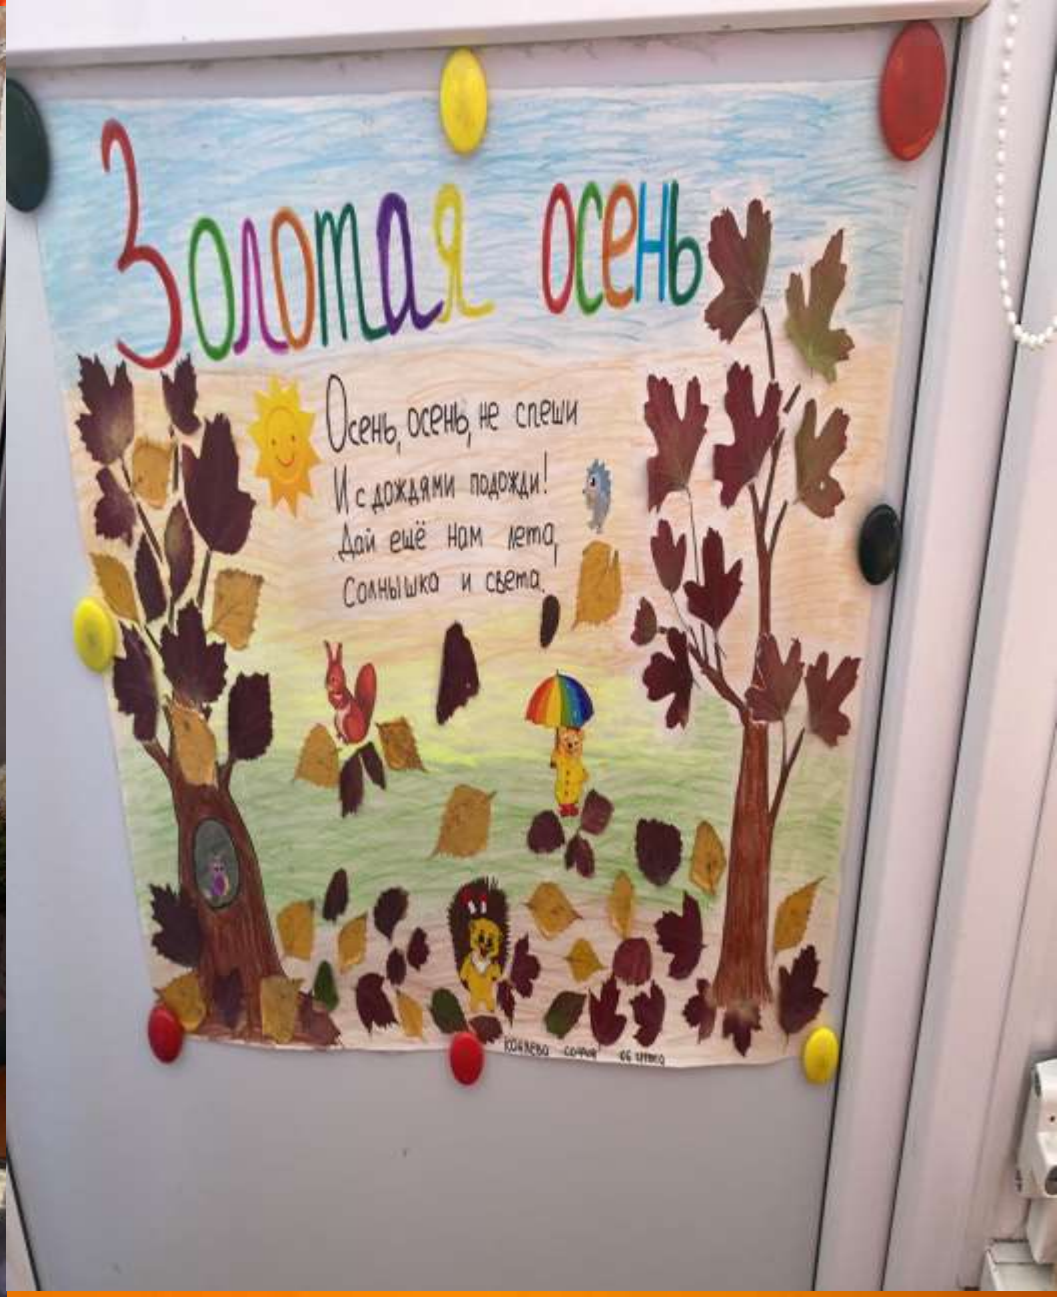 Золотая осень
Осень, осень, не спеши
И с дождями подожди!
Дай ещё нам лета,
Солнышка и света.
София 06 группа